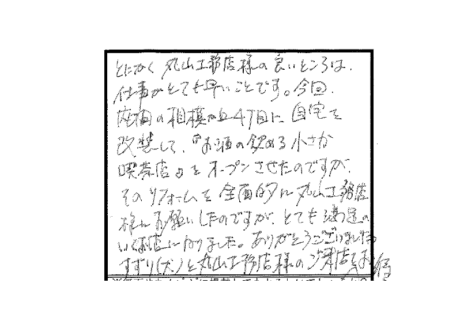 とにかく丸山工務店様の良いところは、
仕事がとても早いことです。今回、
相模が丘4丁目に自宅を
改装して、『お酒の飲める小さな
喫茶店』をオープンさせたのですが、
そのリフォームを全面的に丸山工務店
様にお願いしたのですが、とても満足の
いくお店になりました。ありがとうございました。
すずり(犬)と丸山工務店様のご来店をお待